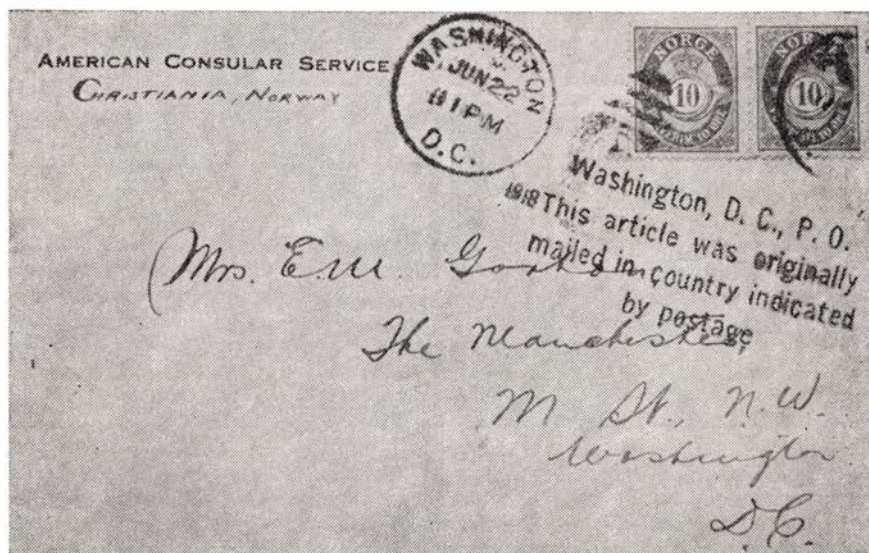 AMERICAN CONSULAR SERVICE
CHRISTIANIA, NORWAY
WASHINGTON
JUN 22
11 PM
D.C.
NORGE
10
NORGE
10
Washington, D. C., P. O.
1918 This article was originally
mailed in country indicated
by postage
Mrs. E.M.
The Manchester,
M St., N.W.
Washington
D.C.